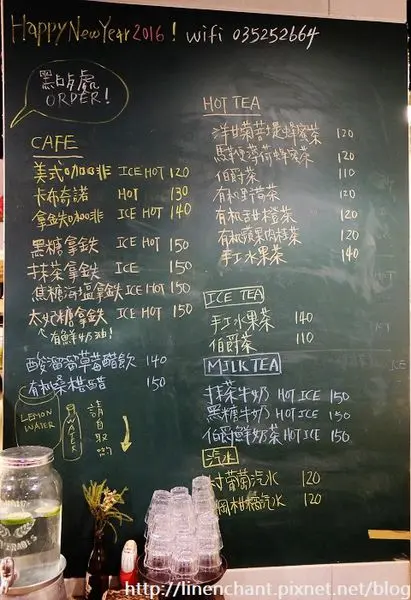 Happy New Year 2016! wifi 035252664
點點處
ORDER!
CAFE
美式咖啡 ICE HOT 120
卡布奇諾 HOT 130
拿鐵咖啡 ICE HOT 140
黑糖拿鐵 ICE HOT 150
抹茶拿鐵 ICE 150
焦糖海塩拿鐵 ICE HOT 150
太妃糖拿鐵 ICE HOT 150
有鮮奶油!
酸溜溜草莓醋飲 140
有机桑椹醋 150
LEMON WATER
WATER
請自取喲
HOT TEA
洋甘菊菩提蜂蜜茶 120
馬鞭薄荷蜂蜜茶 120
伯爵茶 110
有机野莓茶 120
有机甜橙茶 120
有机蘋果肉桂茶 120
手工水果茶 140
ICE TEA
手工水果茶 140
伯爵茶 110
MILK TEA
抹茶牛奶 HOT ICE 150
黑糖牛奶 HOT ICE 150
伯爵鮮奶茶 HOT ICE 150
汽水
葡萄汽水 120
柑橘汽水 120
http://linenchant.pixnet.net/blog